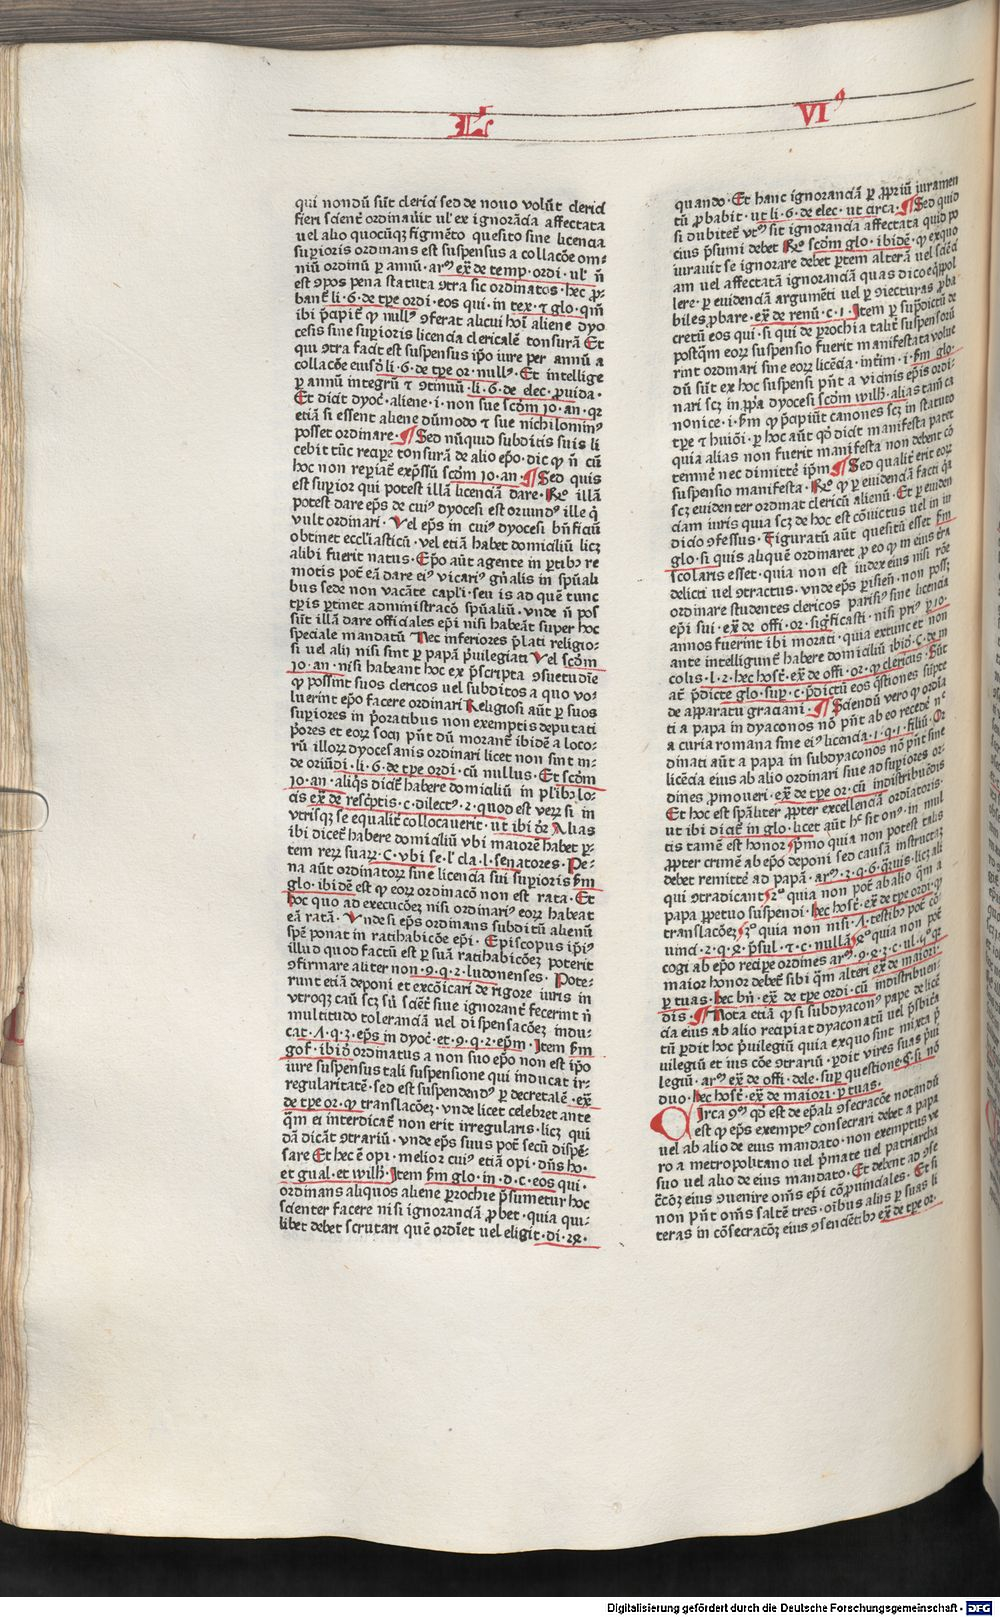 L'
VI⁹
qui nondū sūt clerici sed de nouo volūt clerici
fieri scient̄ ordinauit ul' ex ignorācia affectata
uel alio quocūqʒ figmēto quesito sine licencia
suꝑioris ordinans est suspensus a collacōe om-
niū ordinū ꝑ annū· arᵐ ex̄ de temp· ordi· ul' n̄
est ꝯpos pena statuta ꝯtra sic ordinatos· hec ꝓ-
banī li·6·de tꝑe ordi· eos qui· in tex· ⁊ glo· qm̄
ibi p̄cipit̄ ꝙ nullꝰ ꝯferat alicui hoī aliene dyo
cesis sine suꝑioris licencia clericalē tonsurā Et
qui ꝯtra facit est suspensus ip̄o iure per annū a
collacōe eiusd̄ li·6·de tꝑe or· nullꝰ· Et intellige
ꝑ annū integrū ⁊ ꝯtinuū· li·6·de elec· ꝓuida·
Et dicit dyoc̄· aliene· i· non sue scd̄m io· an· qꝛ
etiā si essent aliene dūmodo ⁊ sue nichilominꝰ
posset ordinare· ¶ Sed nūquid subditis suis li
cebit tūc reciꝑe tonsurā de alio ep̄o· dic ꝙ n̄ cū
hoc non reꝑiat̄ exp̄ssū scd̄m io· an· ¶ Sed quis
est suꝑior qui potest illā licenciā dare· Rᵒ illā
potest dare ep̄s de cuiꝰ dyocesi est oriundꝰ ille q̄
vult ordinari· Vel ep̄s in cuiꝰ dyocesi bn̄ficiū
obtinet eccl'iasticū· vel etiā habet domiciliū licʒ
alibi fuerit natus· Ep̄o aūt agente in ꝑtibꝰ re
motis pot̄ eā dare eiꝰ vicariꝰ gn̄alis in sp̄uali
bus sede non vacāte capl'i· seu is ad quē tunc
tꝑis ꝑtinet administracō sp̄ualiū· vnde n̄ pos
sūt illā dare officiales ep̄i nisi habeāt super hoc
speciale mandatū Nec inferiores p̄lati religio-
si uel alij nisi sint ꝑ papā p̄uilegiati Vel scd̄m
io· an· nisi habeant hoc ex p̄scripta ꝯsuetudīe
ꝙ possint suos clericos uel subditos a quo vo-
luerint ep̄o facere ordinari Religiosi aūt ꝑ suos
suꝑiores in p̄oratibus non exemptis deputati
p̄ores et eorʒ socij pn̄t dū morant̄ ibidē a loco-
rū illorʒ dyocesanis ordinari licet non sint in-
de oriūdi· li·6·de tꝑe ordi· cū nullus· Et scd̄m
io· an· aliqͦs dicit̄ habere domiciliū in pl'ibꝰ lo-
cis ex̄ de resc̄ptis· c· dilectꝰ·2· quod est verʒ si in
vtrisqʒ se equalit̄ collocauerit· ut ibi dr̄ Alias
ibi dicet̄ habere domiciliū vbi maiorē habet ꝑ-
tem rerʒ suarʒ· C· vbi se· l' cla· l· senatores· Pe-
na aūt ordinatorʒ sine licencia sui suꝑioris fm̄
glo· ibidē est ꝙ eorʒ ordinacō non est rata· Et
hoc quo ad execucōeʒ nisi ordinariꝰ eorʒ habeat
eā ratā· Vnde si ep̄s ordinans subditū alienū
spē ponat in ratihabicōe ep̄i· Episcopus ip̄iꝰ
illud quod factū est ꝑ suā ratihabicōeʒ poterit
ꝯfirmare aliter non·9·q·2·lugdonenses· Pote-
runt etiā deponi et excōicari de rigore iuris in
vtroqʒ caū scʒ sū scient̄ siue ignorant̄ fecerint n̄
multitudo tolerancia vel dispensacōeʒ indu-
cat·1·q·7· ep̄s in dyoc̄· et·9·q·2·ep̄m· Item fm̄
gof· ibiᵈ ordinatus a non suo ep̄o non est ip̄o
iure suspensus tali suspensione qui inducat ir-
regularitatē· sed est suspendendꝰ ꝑ decretalē· ex̄
de tꝑe or· ꝙ translacōeʒ· vnde licet celebret ante
q̄m ei interdicat̄ non erit irregularis· licʒ qui
dā dicāt ꝯtrariū· vnde ep̄s suus pot̄ secū dispē-
sare Et hec ē opi· melior cuiꝰ etiā opi· dn̄s ho·
et gual· et wilh̄· Item fm̄ glo· in·d·c·eos qui·
ordinans aliquos aliene ꝑrochie p̄sumetur hoc
scienter facere nisi ignoranciā ꝓbet· quia qui-
libet debet scrutari quē ordīet uel eligit· di·24·
quando· Et hanc ignoranciā ꝑ ꝓpriū iuramen
tū ꝓbabit· ut li·6·de elec· ut circa· ¶ Sed quid
si dubitet̄ vtꝰ sit ignorancia affectata quid po
cius p̄sumi debet Rᵒ scd̄m glo· ibidē· ꝙ exquo
iurauit se ignorare debet ꝑtem alterā uel sciēci
am uel affectatā ignoranciā quas dico eq̄pol
lere· ꝑ euidenciā argumēti uel ꝑ ꝯiecturas ꝓba
biles ꝓbare· ex̄ de renū·c·1· Item ꝑ sup̄dictū de
cretū eos qui· si qui de ꝑrochia talit̄ suspensorū
postq̄m eorʒ suspensio fuerit manifestata volue
rint ordinari sine eorʒ licēcia· intīm· i· fm̄ glo·
dū sūt ex hoc suspensi pn̄t a vicinis ep̄is ordi-
nari scʒ in ꝓpa dyocesi scd̄m wilh̄· alias tan̄ ca
nonice· i· fm̄ ꝙ p̄cipiūt canones scʒ in statuto
tꝑe ⁊ huiōi· ꝑ hoc aūt qd̄ dicit manifesta patet
quia alias non fuerit manifesta non debent cō
temnē nec dimittē ip̄m ¶ Sed qualit̄ erit eorʒ
suspensio manifesta· Rᵒ ꝙ ꝑ euidenciā facti q̄a
scʒ euidenter ordinat clericū alienū· Et ꝑ euiden
ciam iuris quia scʒ de hoc est cōuictus uel in iu
dicio ꝯfessus· Figuratū aūt quesitū esset fm̄
glo· si quis aliquē ordinaret ꝑ eo ꝙ in eius tr̄a
scolaris esset· quia non est iudex eius nisi rōe
delicti uel ꝯtractus· vnde ep̄s ꝑisien̄· non possʒ
ordinare studentes clericos parisiꝰ sine licencia
ep̄i sui· ex̄ de offi· or· sigficasti· nisi priꝰ ꝑ 10·
annos fuerint ibi morati· quia extunc et non
ante intelligunt̄ habere domiciliū ibid̄·C·de in
colis·l·2·hec host̄· ex̄ de offi· or· ꝙ clericus· Sūt
at̄ p̄dicte glo· suꝑ·c·p̄dictū eos q̄stiones sūpte
de apparatu graciani· ¶ Sciendū vero ꝙ ordīa
ti a papa in dyaconos nō pn̄t ab eo recedē n̄ᶜ
a curia romana sine eiꝰ licencia·1·q·1·filiū· Or
dinati aūt a papa in subdyaconos nō pn̄t sine
licēcia eius ab alio ordinari siue ad suꝑiores or-
dines ꝓmoueri· ex̄ de tꝑe or· cū in distribuēdis
Et hoc est spāliter ꝓpter excellenciā ordīatoris·
ut ibi dicit̄ in glo· licet aūt hͦ sit onꝰ· in mul
tis tamē est honor pͥmo quia non potest talis
ꝓpter crimē ab ep̄o deponi sed causā instructʒ
debet remittē ad papā· arᵐ·2·q·6·q̄uis· licʒ ali
qui ꝯtradicant 2ᵒ quia non pot̄ ab alio q̄m a
papa ꝑpetuo suspendi· hec host̄· ex̄ de tꝑe ordi· ꝙ
translacōeʒ 3ᵒ quia non nisi·7·testibꝰ pot̄ cō-
uinci·2·q·4·p̄sul·⁊·c·nullā 4ᵒ quia non pot̄
cogi ab ep̄o reciꝑe ordines arᵐ·9·q·3·c·ul·5ᵒ qꝛ
maior honor debet̄ sibi q̄m alteri ex̄ de maiori·
ꝑ tuas· hec bn̄· ex̄ de tꝑe ordi· cū in distribuen-
dis· ¶ Nota etiā ꝙ si subdyaconꝰ pape de licē
cia eius ab alio recipiat dyaconatū uel p̄sbit̄a
tū ꝑdit hoc p̄uilegiū quia exquo sint mixta p̄
uilegiū et ius cōe ꝯtrariū· ꝑdit vires suas p̄ui
legiū· arᵐ ex̄ de offi· dele· suꝑ questione §· si nō
duo· hec host̄· ex̄ de maiori· ꝑ tuas·
Circa ꝯꝰ qd̄ est de ep̄ali ꝯsecracōe notandū
est ꝙ ep̄s exemptꝰ consecrari debet a papa
uel ab alio de eius mandato· non exemptus ve
ro a metropolitano uel p̄mate uel patriarcha
suo uel alio de eius mandato· Et debent ad ꝯse
c̄cōʒ eius ꝯuenire om̄s ep̄i cōꝓuinciales· Et si
non pn̄t om̄s saltē tres· oībus alijs ꝑ suas li
teras in cōsecracōʒ eius ꝯsenciētibꝰ ex̄ de tꝑe or·
Digitalisierung gefördert durch die Deutsche Forschungsgemeinschaft - DFG